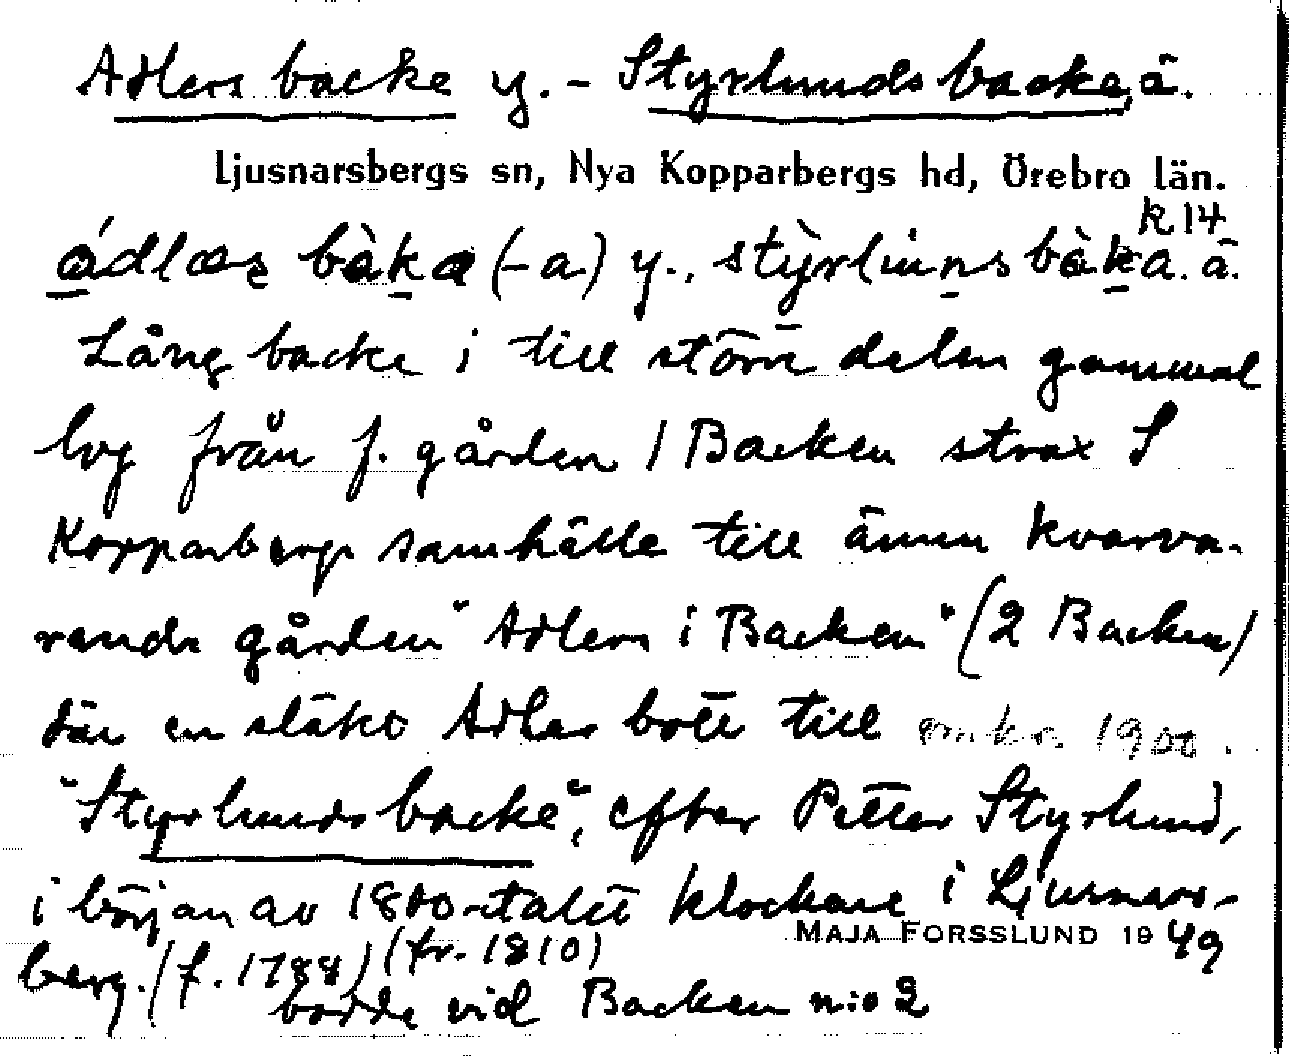 Adlers backe y. - Styrlunds backe, ä.
Ljusnarsbergs sn, Nya Kopparbergs hd, Örebro län.
k 14
bàka (-a) y., bàka. ä.
Lång backe i till större delen gammal
väg från f. gården 1 Backen strax S
Kopparbergs samhälle till ännu kvarva-
rande gården "Adlers i Backen" (2 Backen)
där en släkt Adler bott till omkr. 1900.
"Styrlunds backe", efter Petter Styrlund,
i början av 1800-talet klockare i Ljusnars-
berg. (f. 1788) (fr. 1810)
MAJA FORSSLUND 1949
bodde vid Backen n:o 2